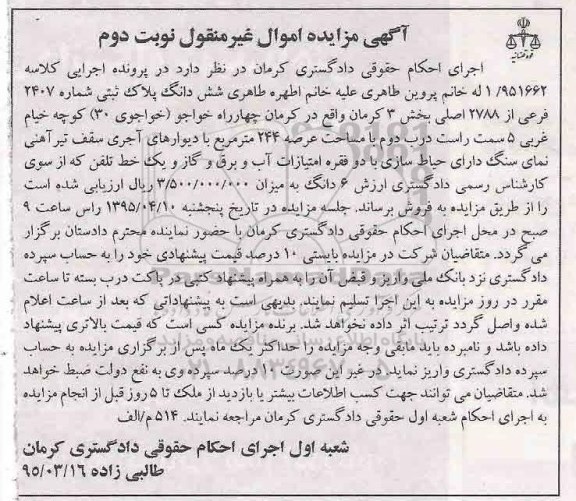 قوه قضائیه
آگهی مزایده اموال غیرمنقول نوبت دوم
اجرای احکام حقوقی دادگستری کرمان در نظر دارد در پرونده اجرایی کلاسه
۱/۹۵۱۶۶۲ له خانم پروین طاهری علیه خانم اطهره طاهری شش دانگ پلاک ثبتی شماره ۲۴۰۷
فرعی از ۲۷۸۸ اصلی بخش ۳ کرمان واقع در کرمان چهارراه خواجو (خواجوی ۳۰) کوچه خیام
غربی ۵ سمت راست درب دوم با مساحت عرصه ۲۴۴ مترمربع با دیوارهای آجری سقف تیرآهنی
نمای سنگ دارای حیاط سازی با دو فقره امتیازات آب و برق و گاز و یک خط تلفن که از سوی
کارشناس رسمی دادگستری ارزش ۶ دانگ به میزان ۳/۵۰۰/۰۰۰/۰۰۰ ریال ارزیابی شده است
را از طریق مزایده به فروش برساند. جلسه مزایده در تاریخ پنجشنبه ۱۳۹۵/۰۴/۱۰ راس ساعت ۹
صبح در محل اجرای احکام حقوقی دادگستری کرمان با حضور نماینده محترم دادستان برگزار
می گردد. متقاضیان شرکت در مزایده بایستی ۱۰ درصد قیمت پیشنهادی خود را به حساب سپرده
دادگستری نزد بانک ملی واریز و قبض آن را به همراه پیشنهاد کتبی در پاکت درب بسته تا ساعت
مقرر در روز مزایده به این اجرا تسلیم نمایند. بدیهی است به پیشنهاداتی که بعد از ساعت اعلام
شده واصل گردد ترتیب اثر داده نخواهد شد. برنده مزایده کسی است که قیمت بالاتری پیشنهاد
داده باشد و نامبرده باید مابقی وجه مزایده را حداکثر یک ماه پس از برگزاری مزایده به حساب
سپرده دادگستری واریز نماید. در غیر این صورت ۱۰ درصد سپرده وی به نفع دولت ضبط خواهد
شد. متقاضیان می توانند جهت کسب اطلاعات بیشتر یا بازدید از ملک تا ۵ روز قبل از انجام مزایده
به اجرای احکام شعبه اول حقوقی دادگستری کرمان مراجعه نمایند. ۵۱۴ م/الف
شعبه اول اجرای احکام حقوقی دادگستری کرمان
طالبی زاده ۹۵/۰۳/۱۶
ParsNamadData